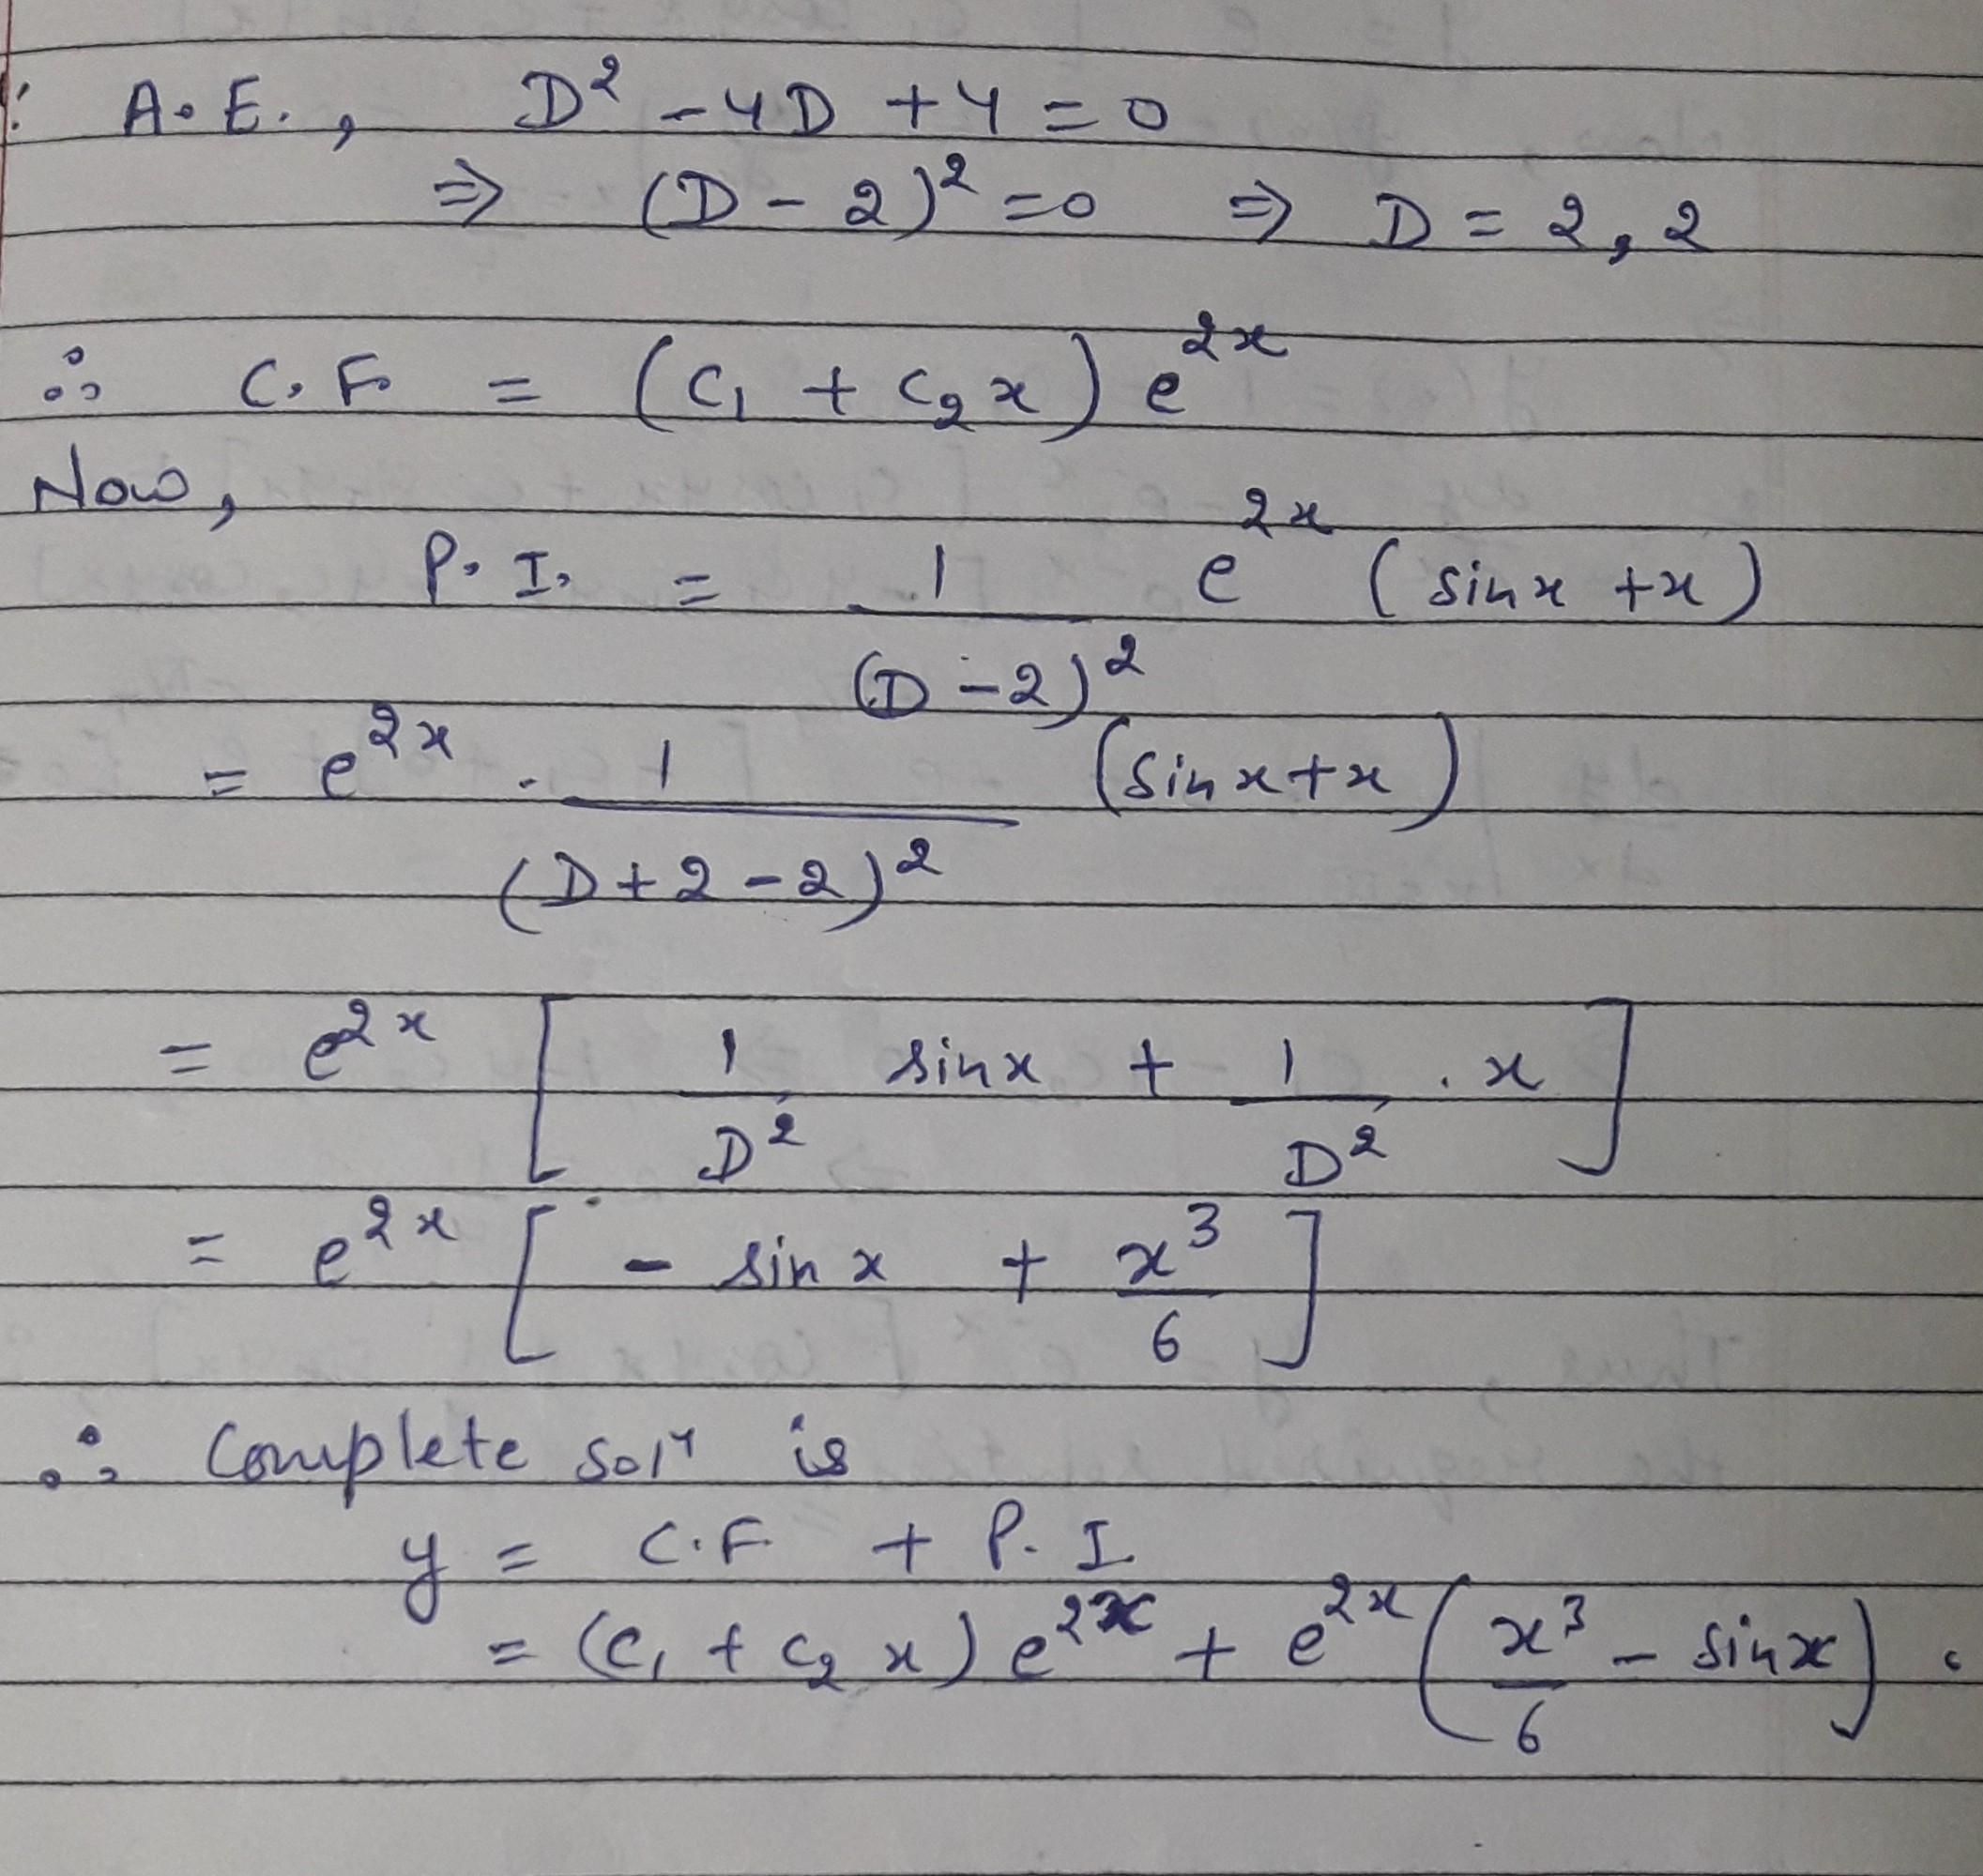 : A.E., D² - 4D + 4 = 0
⇒ (D - 2)² = 0 ⇒ D = 2, 2
∴ C.F. = (C₁ + C₂x) e²ˣ
Now,
P.I. = 1/(D - 2)² e²ˣ (sinx + x)
= e²ˣ . 1/(D + 2 - 2)² (sinx + x)
= e²ˣ [1/D² sinx + 1/D² . x]
= e²ˣ [- sinx + x³/6]
∴ Complete solⁿ is
y = C.F. + P.I
= (C₁ + C₂x) e²ˣ + e²ˣ (x³/6 - sinx) .